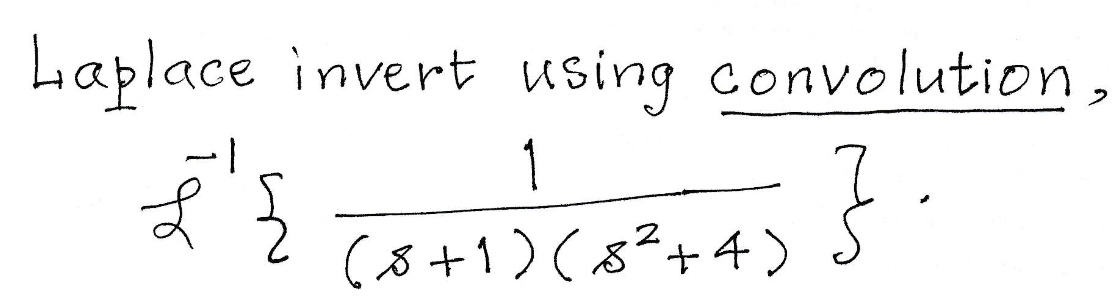 Laplace invert using convolution,
ℒ⁻¹{ 1/((s+1)(s²+4)) }.